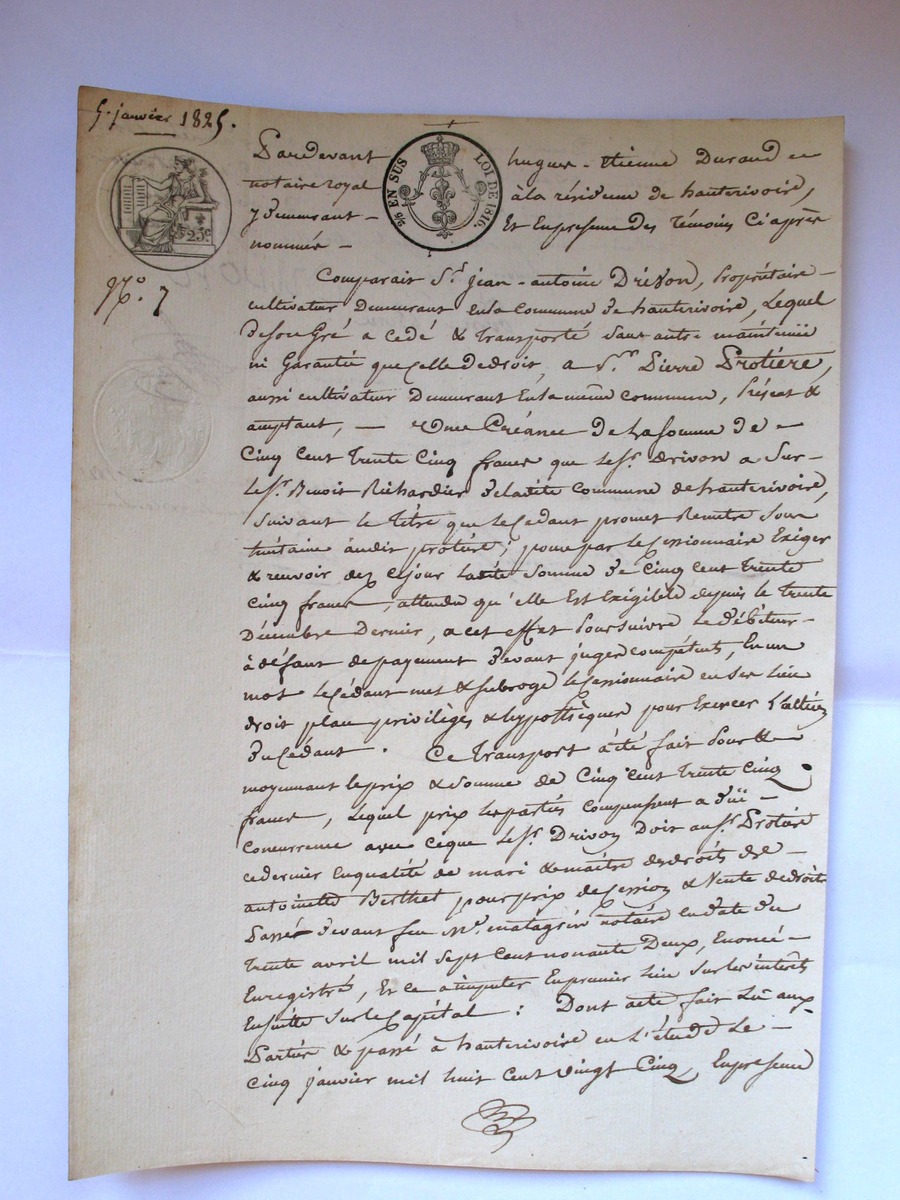 5. janvier 1825.
Pardevant hugues-etienne Durand
notaire royal à la résidence de hauterivoire,
y demeurant - Et En presence des témoins Ci après
nommés -
2/10 EN SUS LOI DE 1816.
25c
No. 7
Comparait Sr. jean-antoine Drivon, Propriétaire
cultivateur Demeurant En la Commune de hauterivoire, Lequel
de son Gré a Cédé & Transporté Sans autre maintenüe
ni Garantie que Celle de droit, a Sr. Pierre Protière,
aussi cultivateur Demeurant En la même Commune, Présent &
acceptant, - Une Créance De La Somme de
Cinq Cent trente Cinq francs que le Sr. Drivon a Sur
le Sr. Benoit Richardier de ladite Commune de hauterivoire,
Suivant le titre que le Cédant promet Remettre
audit protière; pour par le Cessionnaire Exiger
& recevoir dez ce jour ladite Somme de Cinq Cent trente
Cinq francs, attendu qu'elle Est Exigible depuis le trente
Décembre Dernier, a cet effet Poursuivre le débiteur
à défaut de payement devant juges compétents, En un
mot le Cédant met & subroge le Cessionnaire en Ses Lieu
droit place privilèges & hypothèques pour Exercer
du Cédant. Ce transport a été fait Pour &
moyennant le prix & Somme de Cinq Cent trente Cinq
francs, Lequel prix les parties Compensent a düe
Concurrence avec Ce que le Sr. Drivon Doit au Sr. Protière
ce dernier En qualité de mari & maître des droits de
antoinette Berthet pour prix de Cession & Vente de droits
Passée devant feu Me. matagrin notaire en date du
trente avril mil Sept Cent nonante Deux, Enoncé
Enregistrée, Et ce à imputer En premier lieu Sur les intérêts
Ensuite Sur le Capital: Dont acte fait Lu aux
Parties & passé à hauterivoire en l'étude Le
Cinq janvier mil huit Cent vingt Cinq, En presence